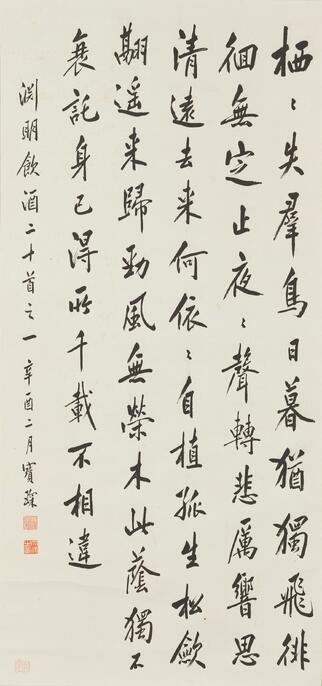 栖〻失羣鳥日暮猶獨飛徘
徊無定止夜〻聲轉悲厲響思
清遠去来何依〻自植孤生松歛
翮遥来歸勁風無榮木此蔭獨不
衰託身已得所千載不相違
渕明飲酒二十首之一 辛酉二月寶琛